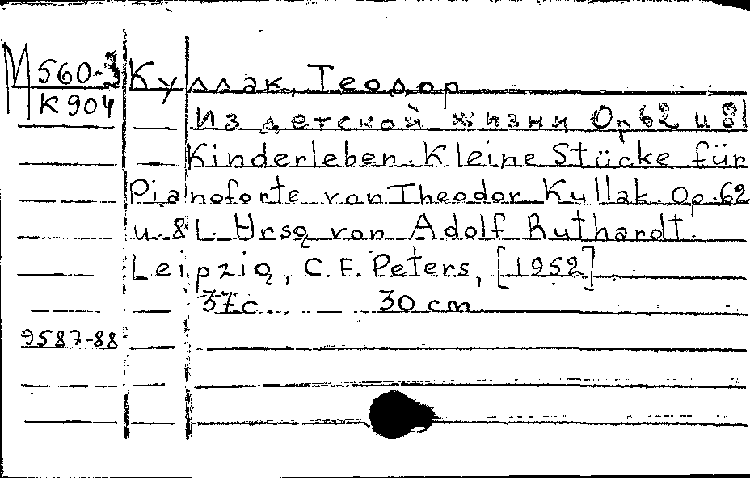 М 560-3 Куллак, Теодор
К 904
Из детской жизни Op 62 и 81
Kinderleben. Kleine Stücke für
Pianoforte von Theodor Kullak Op. 62
u. 81. Hrsg von Adolf Ruthardt.
Leipzig, C. F. Peters, [1952]
37с. 30 cm
9587-88